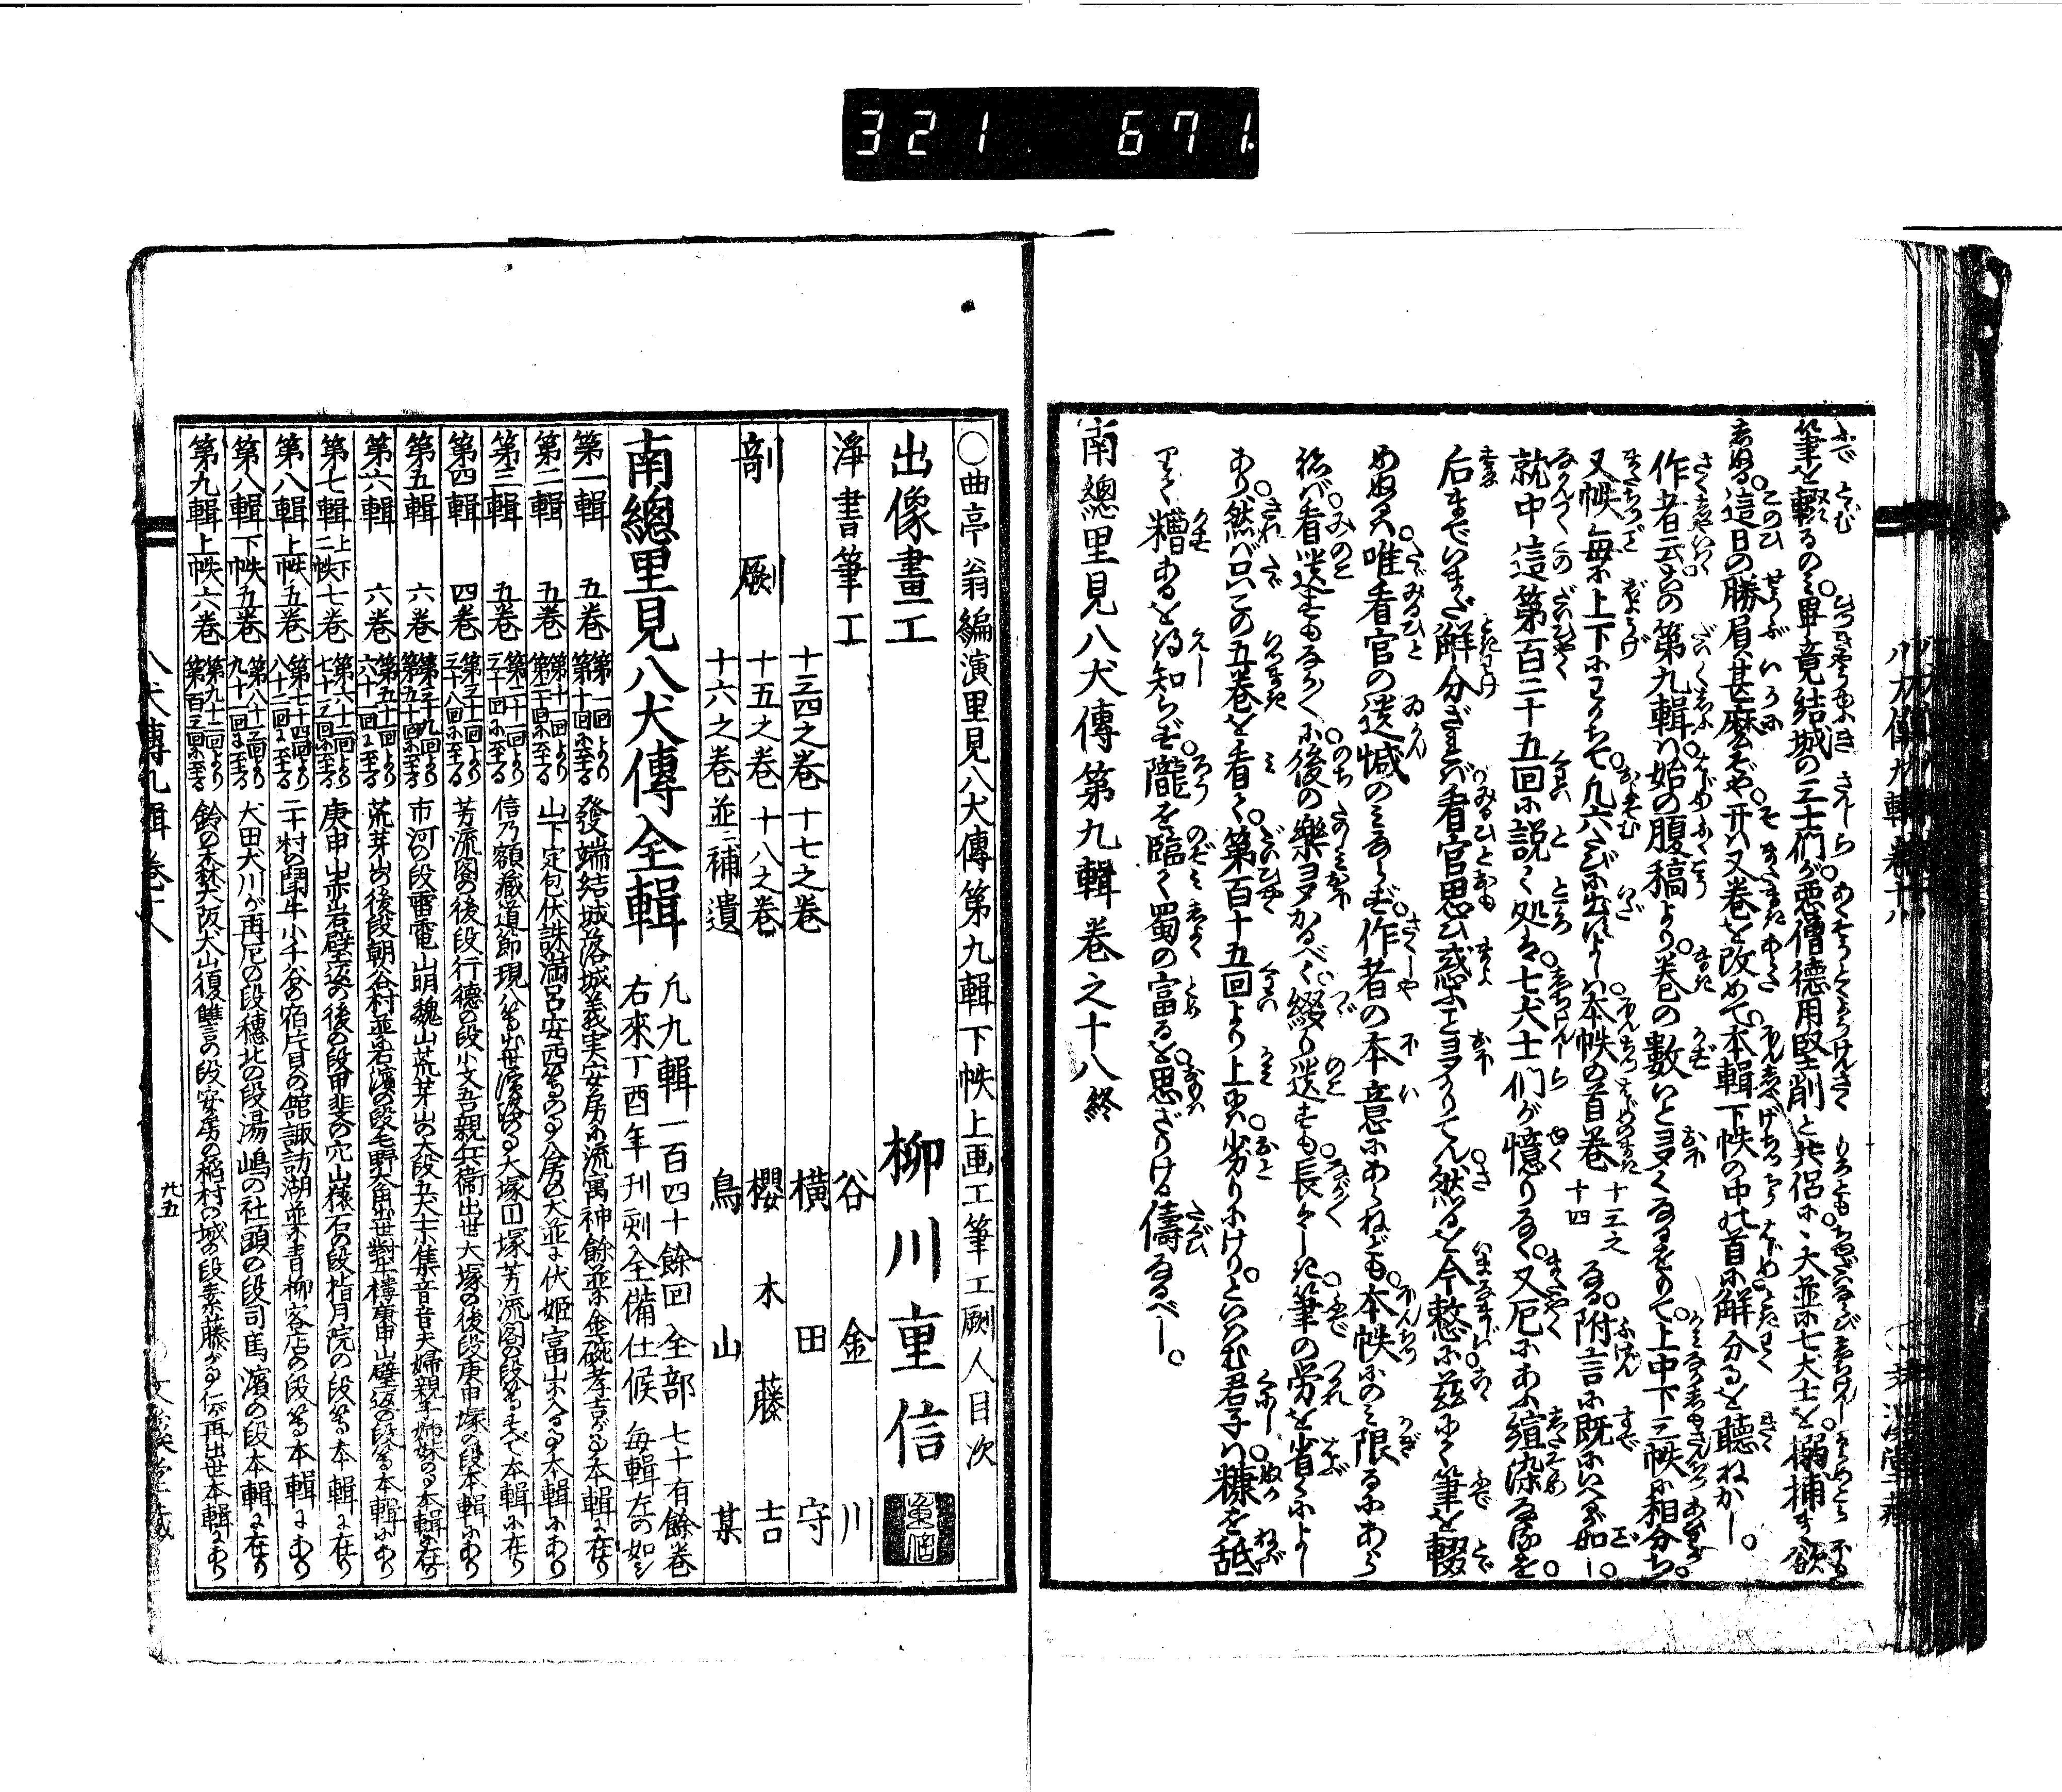 321 671
筆を輟るのミ畢竟結城の三士們が悪僧徳用堅削と共侶に、大並に七犬士を搦捕ま欲
する。這日の勝負甚麼ぞや。开ハ又巻を改めて、本輯下帙の中の首に解分るを聽ねかし。
作者云この第九輯ハ始の腹稿より。巻の數いと多くなるをもて。上中下三帙に相分ち。
又帙毎に上下にわかちて。凡六たびに出せバ。本帙の首巻十三之十四なる。附言に既にいへるが如し。
就中這第百二十五回に説く処ハ。七犬士們が憶りなく。又厄にあふ縕染なるを。
后までいまだ解分ざれバ。看官思ひ惑ふこと多かりてん。然るを今憖に茲にて筆を輟
めぬるハ。唯看官の遺憾のミならず。作者の本意にあらねども。本帙にのミ限るにあら
ねバ。看遺すもなかなかに。後の樂多かるべく。綴り遺すも長々しき。筆の労を省くによし
あり。然バこの五巻を看て。第百十五回より上に劣りにけりといはむ君子ハ糠を舐
りて糟あるを得知らず。隴を臨て蜀の富るを思ざりける儔なるべし。
南總里見八犬傳第九輯巻之十八終
○曲亭翁編演里見八犬傳第九輯下帙上画工筆工剞劂人目次
出像畫工 柳川重信
淨書筆工 谷金川
剞劂 十三四之巻 十七之巻 横田守
十五之巻 十八之巻 櫻木藤吉
十六之巻並ニ補遺 鳥山某
南總里見八犬傳全輯 凡九輯一百四十餘回全部七十有餘巻
右來丁酉年刊刻全備仕候 毎輯左の如シ
第一輯 五巻 第一回より第十回に至る 發端結城落城義実安房に流寓神餘並に金碗孝吉が事本輯に在り
第二輯 五巻 第十一回より第二十回に至る 山下定包伏誅満呂安西等の事八房の犬並に伏姫富山に入る事本輯にあり
第三輯 五巻 第二十一回より第三十回に至る 信乃額藏道節現八等出世濱路の事大塚円塚芳流閣の段等まで本輯に在り
第四輯 四巻 第三十一回より第三十八回に至る 芳流閣の後段行徳の段小文吾親兵衛出世大塚の後段庚申塚の段本輯にあり
第五輯 六巻 第三十九回より第五十回に至る 市河の段雷電山明巍山荒芽山の大段五犬士集會音音夫婦親子姉妹の事本輯に在り
第六輯 六巻 第五十一回より第六十一回に至る 荒芽山の後段朝谷村並に石濱の段毛野大角出世對牛樓庚申山壁返の段等本輯にあり
第七輯 上下二帙七巻 第六十二回より第七十三回に至る 庚申山赤岩壁返の後の段甲斐の穴山猿石の段指月院の段等本輯に在り
第八輯 上帙五巻 第七十四回より第八十二回に至る 二十村の鬪牛小千谷の宿片貝の舘諏訪湖並木青柳客店の段等本輯にあり
第八輯 下帙五巻 第八十三回より第九十一回に至る 犬田犬川が再厄の段穗北の段湯嶋の社頭の段司馬濱の段本輯に在り
第九輯 上帙六巻 第九十二回より第百三回に至る 鈴の森犬阪犬山復讐の段安房の稲村の城の段素藤が事仁が再出世本輯にあり
八犬傳九輯巻十八
廿五